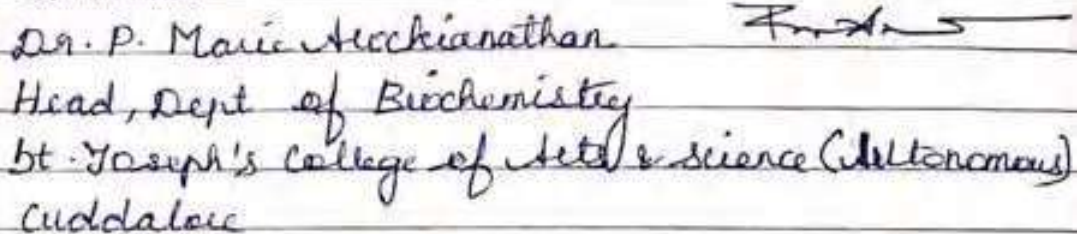 Dr. P. Marie Arockianathan
Head, Dept of Biochemistry
St. Joseph's College of Arts & Science (Autonomous)
Cuddalore